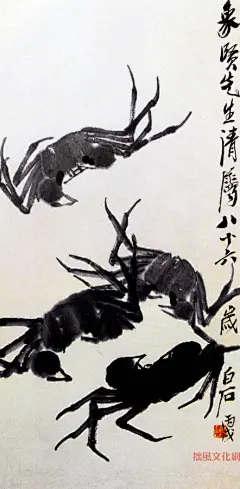 象賢先生清屬八十六
歲
白石畫
拙風文化網